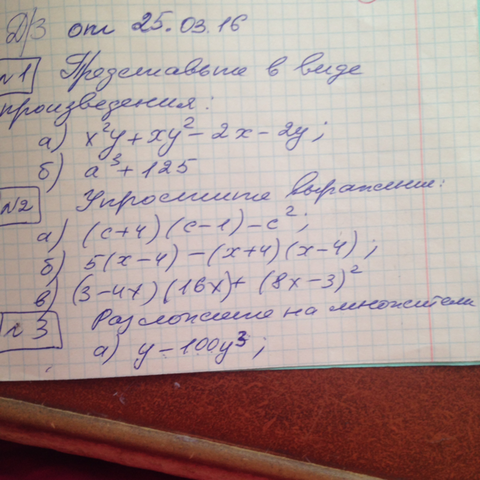 Д/З от 25.03.16
№1 Представьте в виде
произведения:
а) x²y + xy² - 2x - 2y;
б) a³ + 125
№2 Упростите выражение:
а) (c+4)(c-1) - c²;
б) 5(x-4) - (x+4)(x-4);
в) (3-4x)(16x)+ (8x-3)²
№3 Разложите на множители
а) y - 100y³;